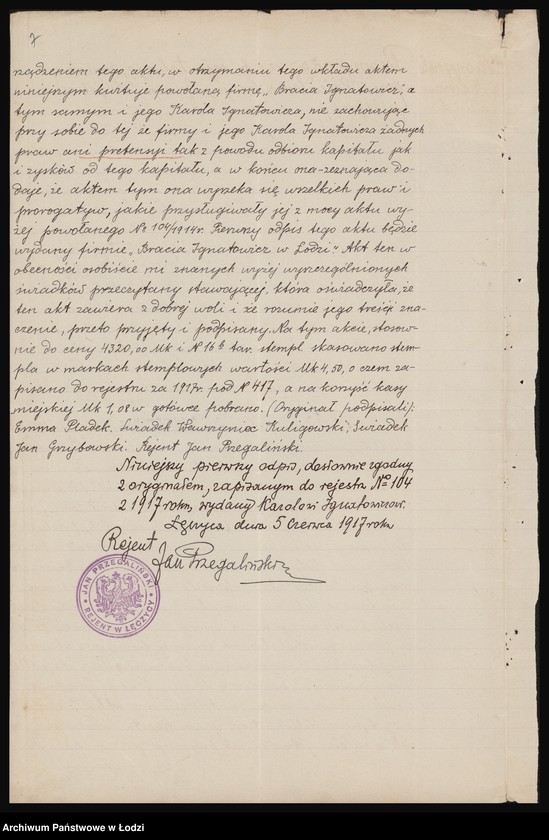 7
rządzeniem tego aktu, w otrzymaniu tego wkładu aktem
niniejszym kwituje powołaną firmę „Bracia Ignatowicz", a
tym samym i jego Karola Ignatowicza, nie zachowując
przy sobie do tej że firmy i jego Karola Ignatowicza żadnych
praw ani pretensji tak z powodu odbioru kapitału jak
i zysków od tego kapitału, a w końcu ona-zeznająca do-
daje, że aktem tym ona wyrzeka się wszelkich praw i
prorogatyw, jakie przysługiwały jej z mocy aktu wy-
żej powołanego № 104/1914r. Pierwszy odpis tego aktu będzie
wydany firmie „Bracia Ignatowicz w Łodzi." Akt ten w
obecności osobiście mi znanych wyżej wyszczególnionych
świadków przeczytany stawającej, która oświadczyła, że
ten akt zawiera z dobrej woli i że rozumie jego treść i zna-
czenie, przeto przyjęty i podpisany. Na tym akcie, stosow-
nie do ceny 4320,00 Mk i № 16 tar. stempl. skasowano stem-
pla w markach stemplowych wartości Mk 4,50, o czem za-
pisano do rejestru za 1917r. pod № 417, a na korzyść kasy
miejskiej Mk 1,08 w gotówce pobrano. (Oryginał podpisali):
Emma Pladek. Świadek Wawrzyniec Kuligowski, Świadek
Jan Grzybowski. Rejent Jan Przegaliński.
Niniejszy pierwszy odpis, dosłownie zgodny
z oryginałem, zapisanym do rejestru № 104
z 1917 roku, wydany Karolowi Ignatowiczowi.
Łęczyca dnia 5 Czerwca 1917 roku
Rejent
Jan Przegaliński
JAN PRZEGALIŃSKI
REJENT W ŁĘCZYCY
Archiwum Państwowe w Łodzi